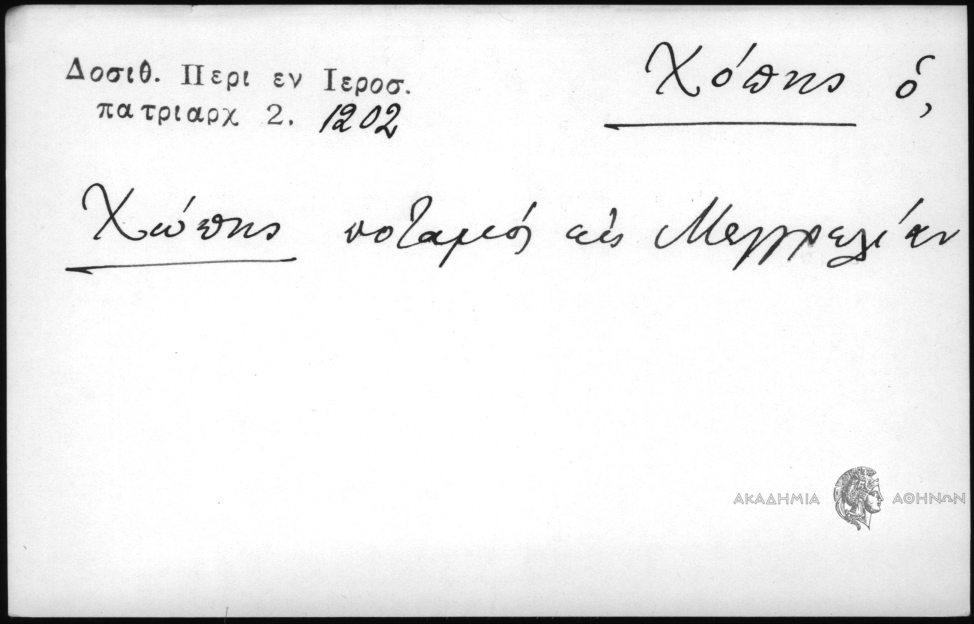 Δοσιθ. Περι εν Ιεροσ.
πατριαρχ 2. 1202
Χόπης ὁ,
Χώπης ποταμός εἰς Μεγγρελίαν
ΑΚΑΔΗΜΙΑ ΑΘΗΝΩΝ